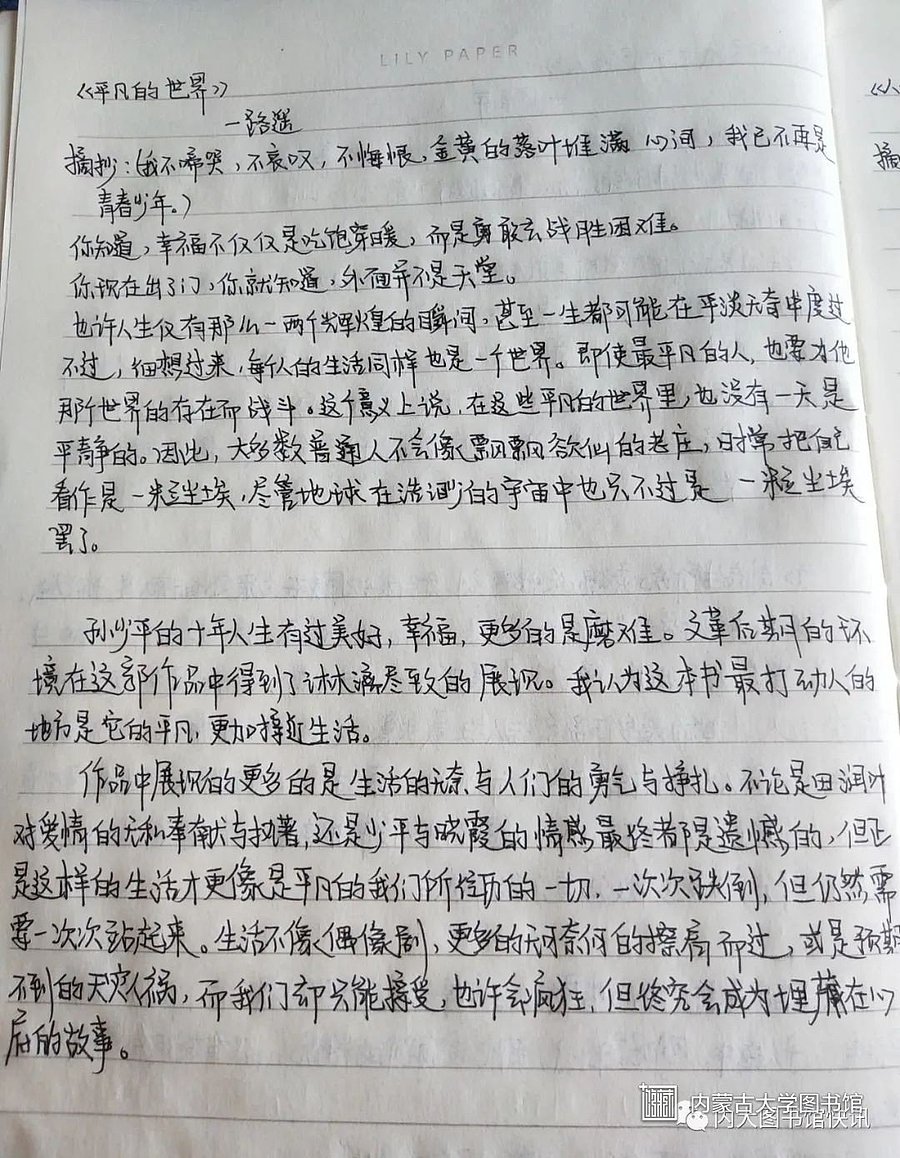 LILY PAPER
《平凡的世界》
—路遥
摘抄:(我不啼哭,不哀叹,不悔恨,金黄的落叶堆满心间,我已不再是
青春少年。)
你知道,幸福不仅仅是吃饱穿暖,而是勇敢去战胜困难。
你现在出了门,你就知道,外面并不是天堂。
也许人生仅有那么一两个辉煌的瞬间,甚至一生都可能在平淡无奇中度过
不过,细想过来,每个人的生活同样也是一个世界。即使最平凡的人,也要为他
那个世界的存在而战斗。这个意义上说,在这些平凡的世界里,也没有一天是
平静的。因此,大多数普通人不会像飘飘欲仙的老庄,时常把自己
看作是一粒尘埃,尽管地球在浩渺的宇宙中也只不过是一粒尘埃
罢了。
孙少平的十年人生有过美好,幸福,更多的是磨难。文革后期的环
境在这部作品中得到了淋漓尽致的展现。我认为这本书最打动人的
地方是它的平凡,更加接近生活。
作品中展现的更多的是生活的无奈与人们的勇气与挣扎。不论是田润叶
对爱情的无私奉献与执著,还是少平与晓霞的情感最终都是遗憾的,但正
是这样的生活才更像是平凡的我们所经历的一切,一次次跌倒,但仍然需
要一次次站起来。生活不像偶像剧,更多的无可奈何的擦肩而过,或是预期
不到的天灾人祸,而我们却只能接受,也许会疯狂,但终究会成为埋藏在心
底的故事。
内蒙古大学图书馆
内大图书馆快讯